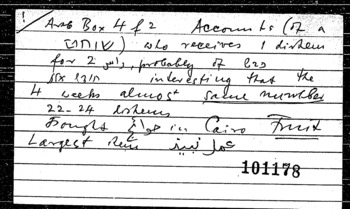 Arab Box 4 f 2 Accounts (of a
שוחט) who receives 1 dirhem
for 2 راس, probably of
interesting that the
4 weeks almost same number
22-24 dirhems
Bought حوائج in Cairo Fruit
Largest item عمل نبيذ
101178